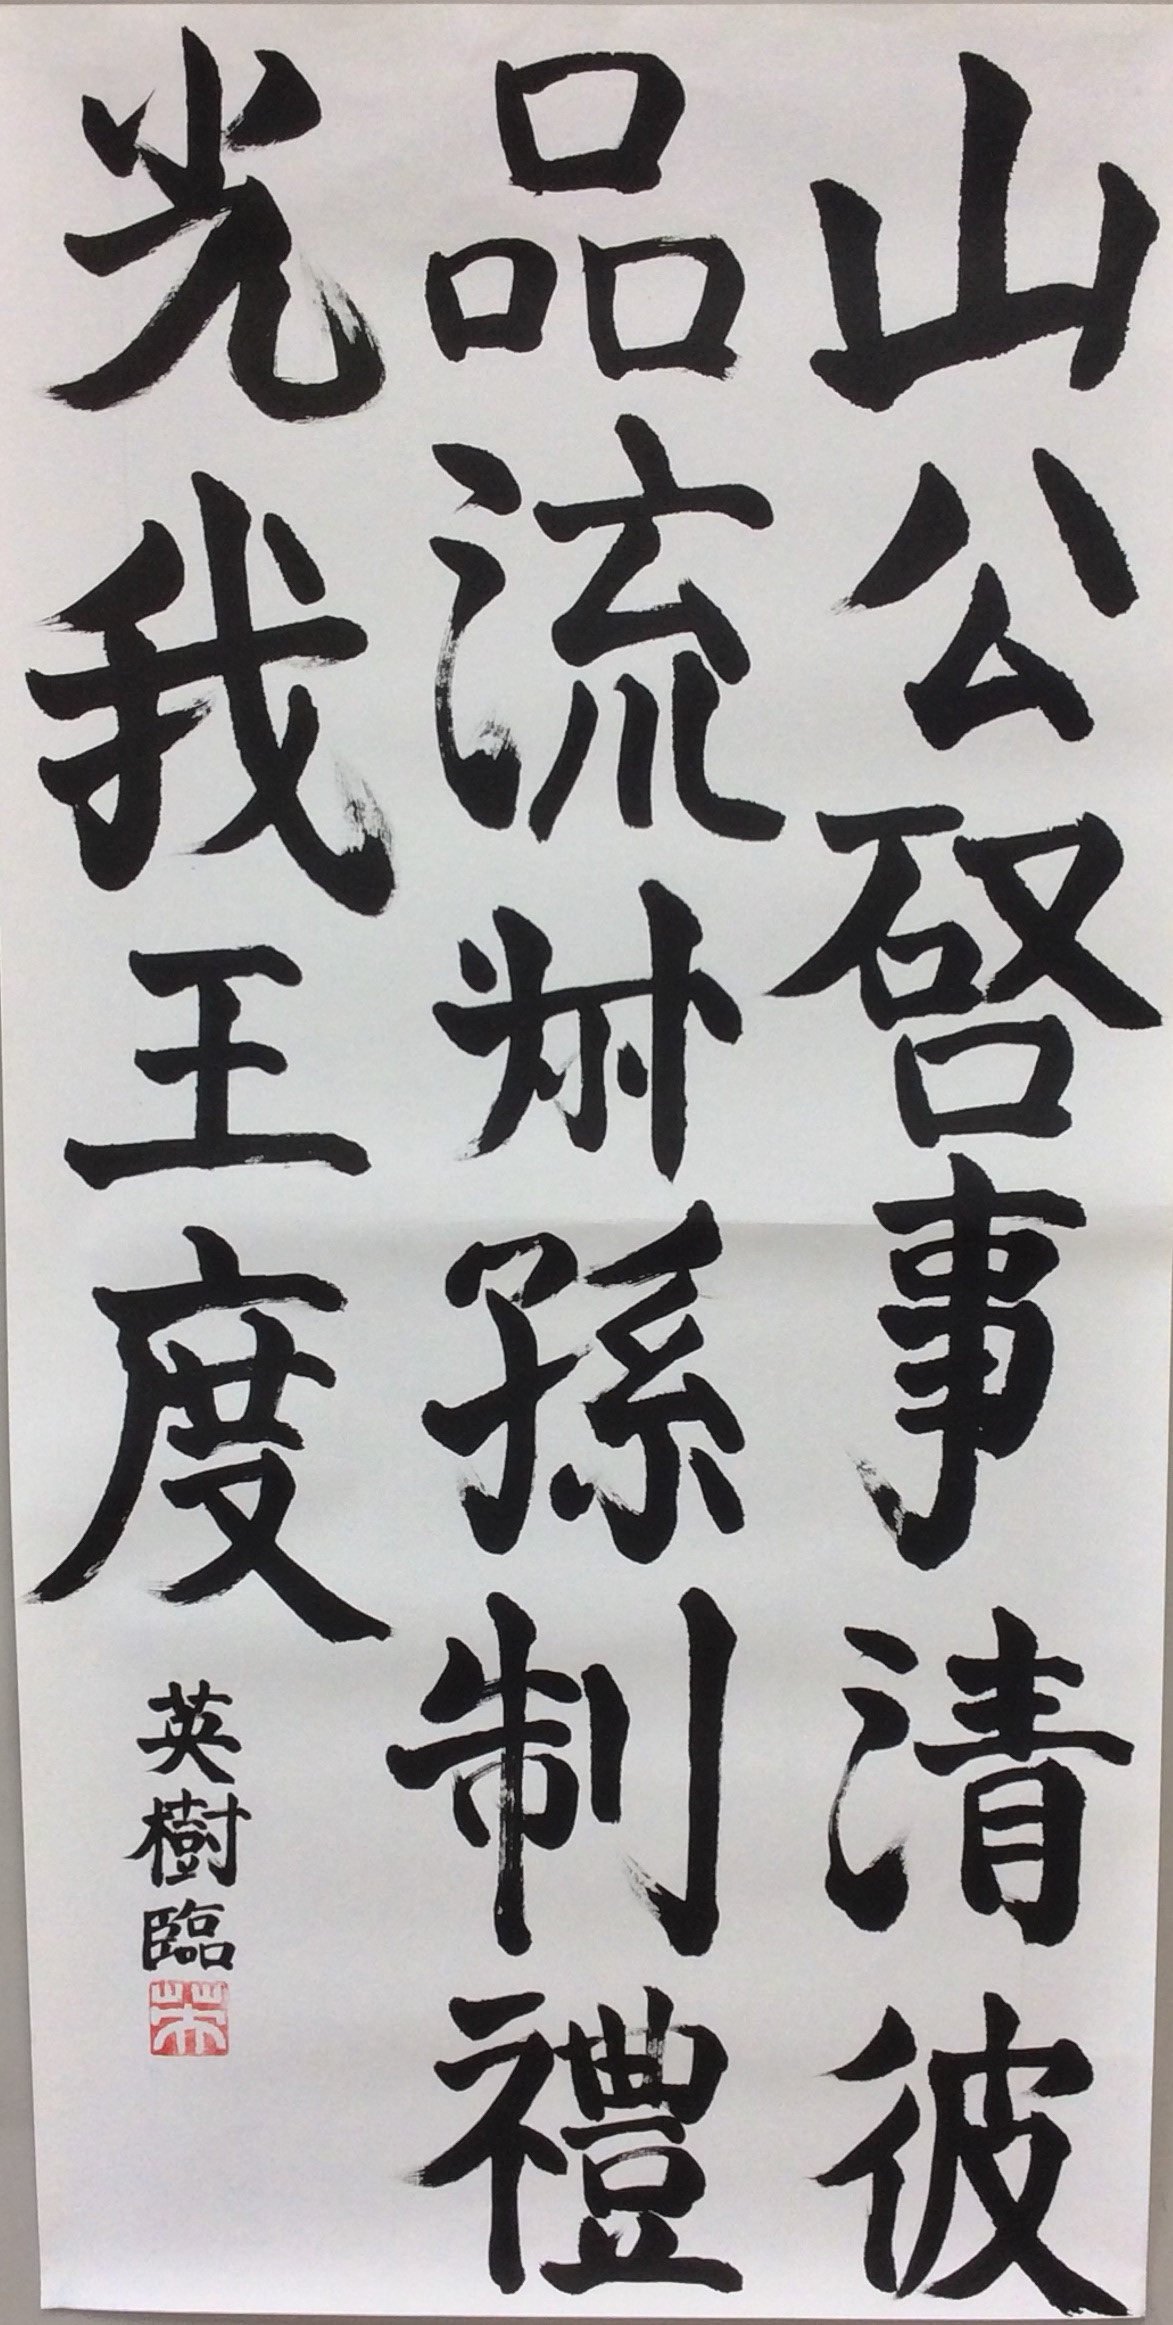 山公啓事清彼
品流叔孫制禮
光我王度
英樹臨